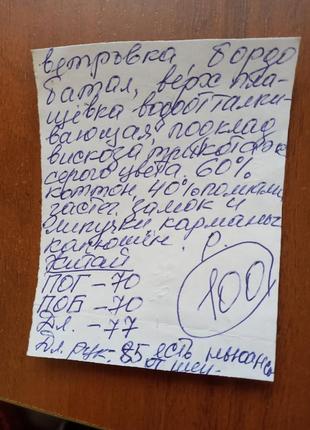 ветръвка, бордо
батал, верх пла-
щёвка водоотталки-
вающая, подклад
вискоза, трикотаж
серого цвета. 60%
коттон, 40%
застёг. замок и
липучки, карманы
капюшён. р.
Китай
ПОГ - 70
ПОБ - 70
Дл. - 77
100
Дл. рук. 85 есть нюансы